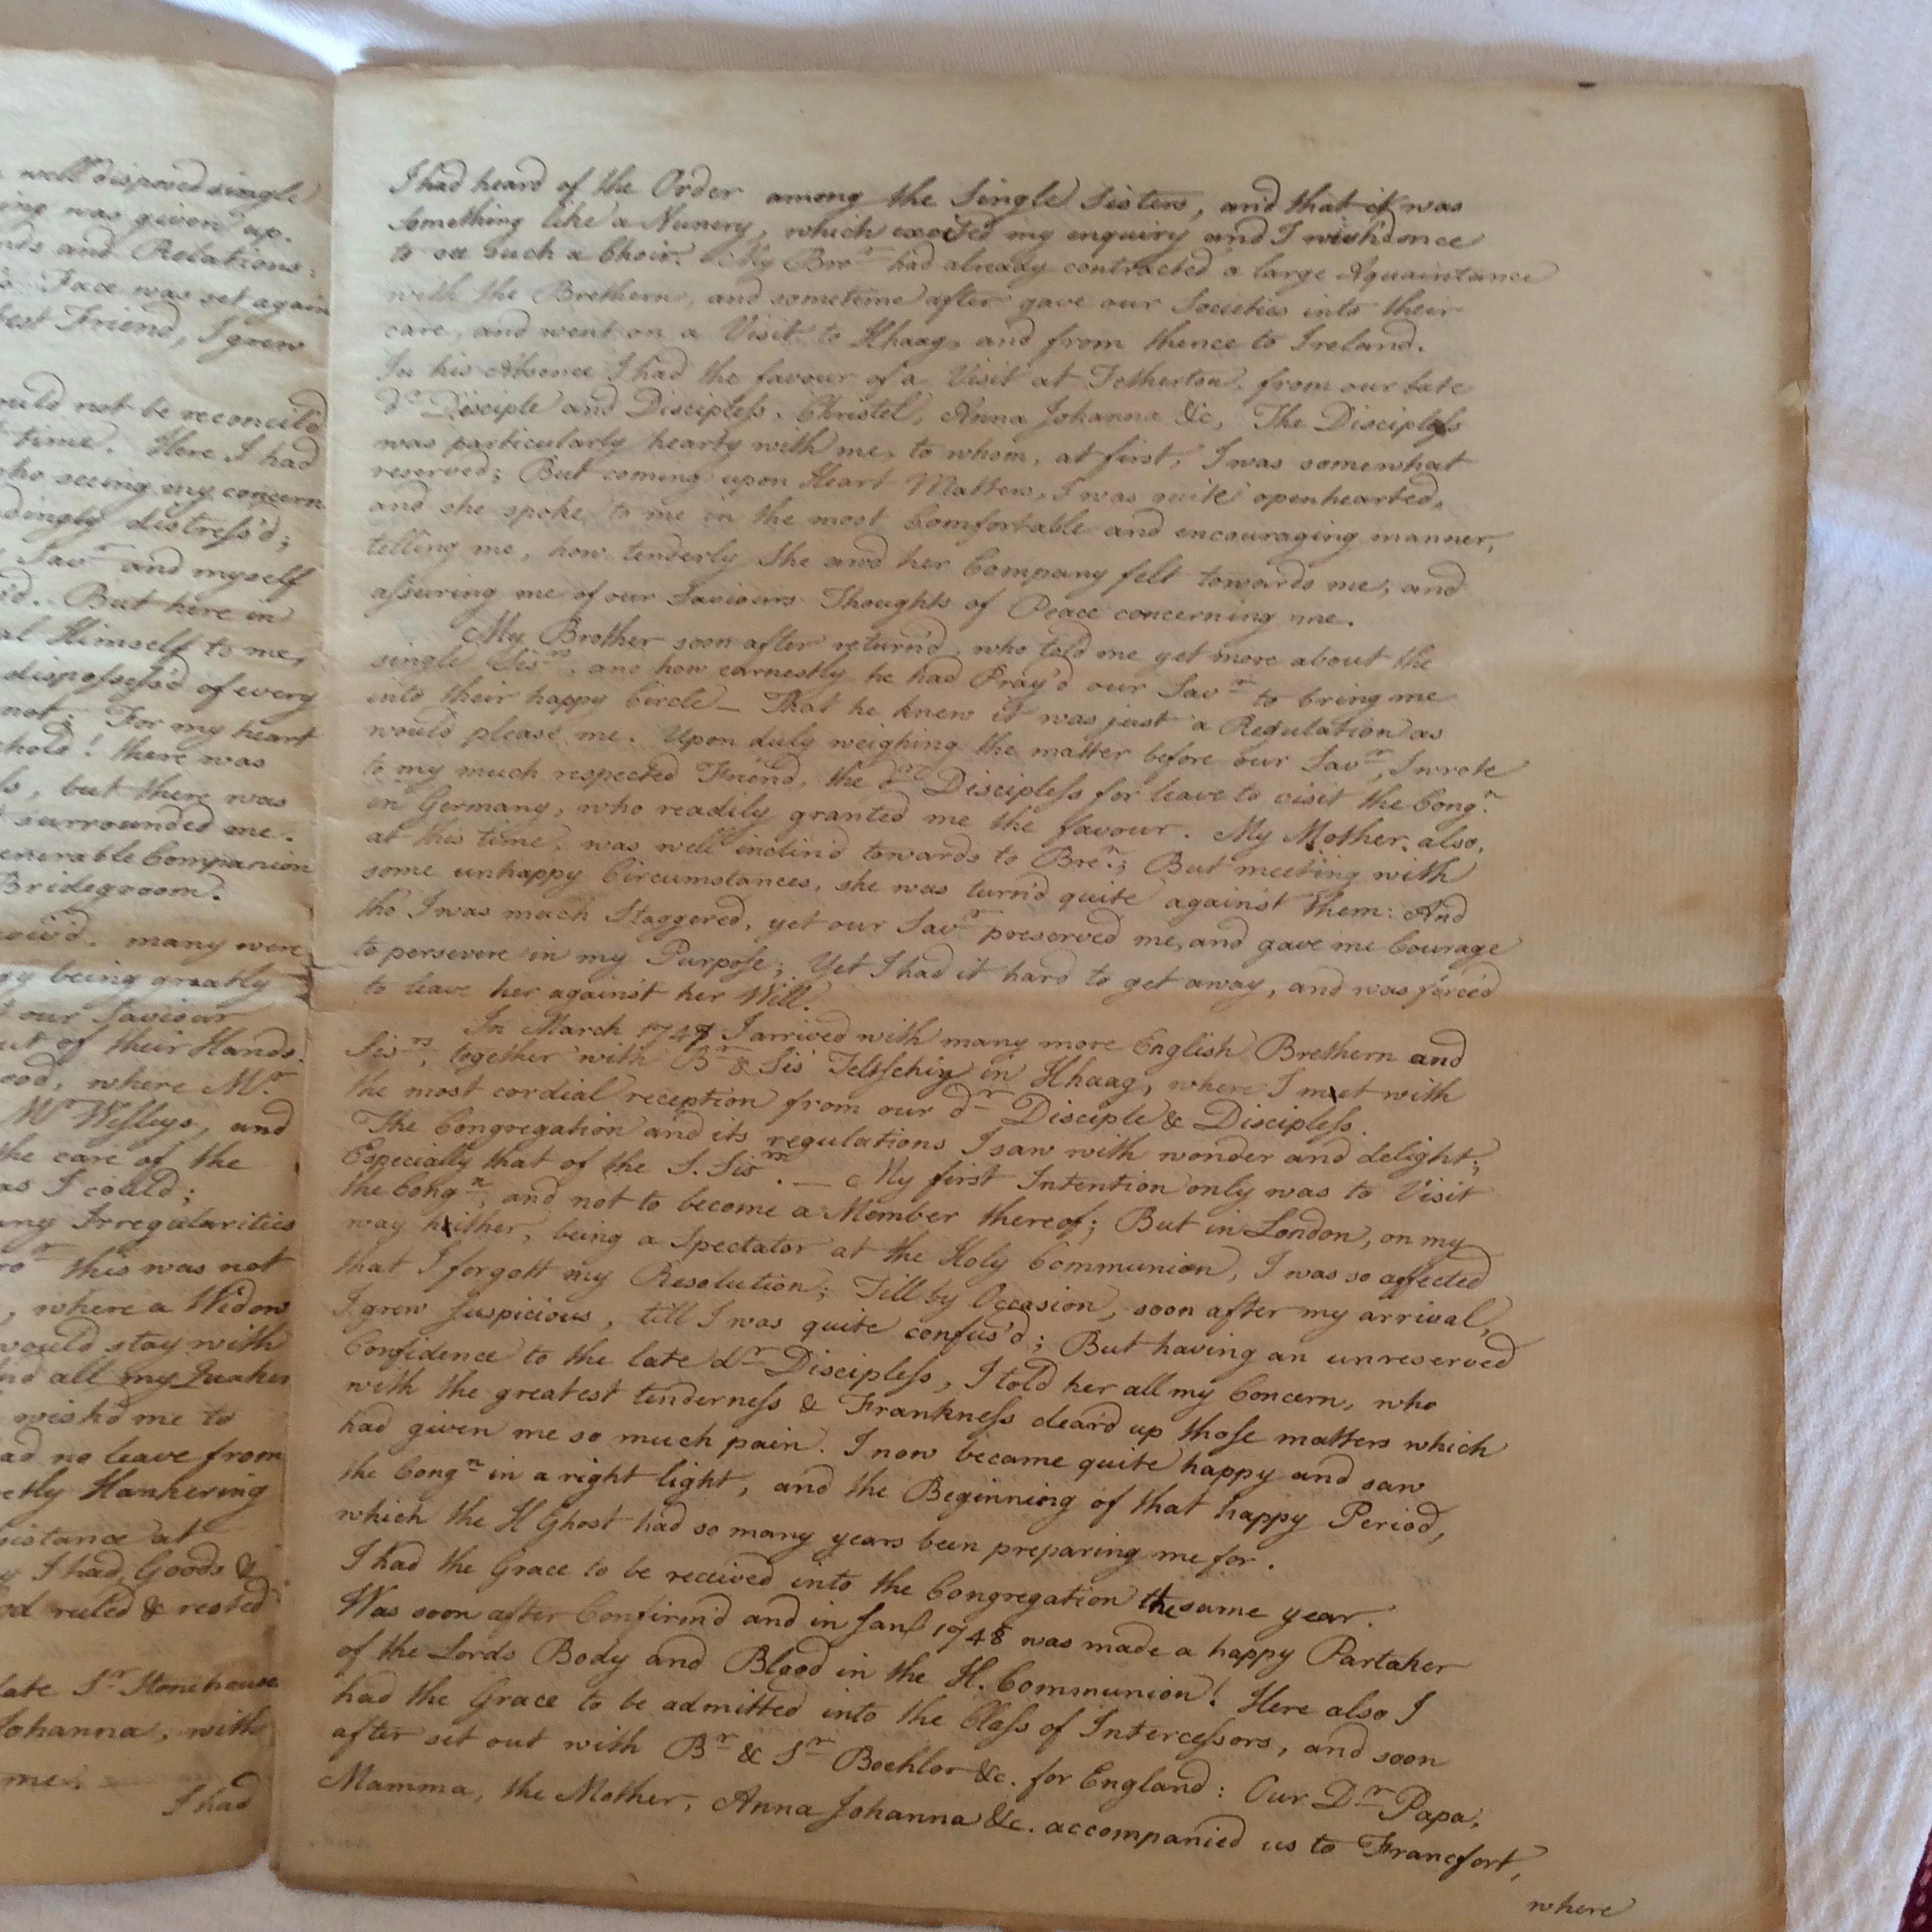 well disposed single
ing was given up.
nds and Relations:
s Face was set again
best Friend, I grew
ould not be reconcil'd
time. Here I had
who seeing my concern
dingly distress'd;
Savr and myself
id. But here in
al Himself to me,
dispossess'd of every
not: For my heart
hold! there was
ls, but there was
surrounded me.
enerable Companion
Bridegroom.
many were
gy being greatly
our Saviour
ut of their Hands.
ood, where Mr
Mr Wesleys, and
the care of the
as I could;
any Irregularities
ror this was not
, where a Widow
would stay with
nd all my Quaker
wish'd me to
ad no leave from
etly Hankering
sistance at
I had, Goods &
od ruled & rested
late Sr Stonehouse
Johanna, with
me.
I had
I had heard of the Order among the Single Sisters, and that it was
something like a Nunery, which excited my enquiry and I wish'd once
to see such a Choir. My Bror had already contracted a large Aquaintance
with the Brethern, and sometime after gave our Societies into their
care, and went on a Visit to Hhaag, and from thence to Ireland.
In his Absence I had the favour of a Visit at Fetherton from our late
dr Disciple and Discipless, Christel, Anna Johanna &c, The Discipless
was particularly hearty with me, to whom, at first, I was somewhat
reserved; But coming upon Heart Matters, I was quite openhearted,
and she spoke to me in the most Comfortable and encouraging manner,
telling me, how tenderly She and her Company felt towards me, and
assuring me of our Saviours Thoughts of Peace concerning me.
My Brother soon after return'd, who told me yet more about the
single Sisrs, and how earnestly he had Pray'd our Savr to bring me
into their happy Circle — That he knew it was just a Regulation as
would please me. Upon duly weighing the matter before our Savr, I wrote
to my much respected Friend, the dr Discipless for leave to visit the Congn
in Germany, who readily granted me the favour. My Mother also,
at this time, was well inclin'd towards to Bren; But meeting with
some unhappy Circumstances, she was turn'd quite against them: And
tho I was much Staggered, yet our Savr preserved me, and gave me Courage
to persevere in my Purpose; Yet I had it hard to get away, and was forced
to leave her against her Will.
In March 1747 I arrived with many more English Brethern and
Sisrs, together with Br & Sis Teltschig in Hhaag, where I met with
the most cordial reception from our dr Disciple & Discipless.
The Congregation and its regulations I saw with wonder and delight;
Especially that of the S. Sisrs. — My first Intention only was to Visit
the Congn, and not to become a Member thereof; But in London, on my
way hither, being a Spectator at the Holy Communion, I was so affected
that I forgott my Resolution; Till by Occasion, soon after my arrival,
I grew Suspicious, till I was quite confus'd; But having an unreserved
Confidence to the late dr Discipless, I told her all my Concern, who
with the greatest tenderness & Frankness clear'd up those matters which
had given me so much pain. I now became quite happy and saw
the Congn in a right light, and the Beginning of that happy Period,
which the H Ghost had so many years been preparing me for.
I had the Grace to be received into the Congregation the same year.
Was soon after Confirm'd and in Jany 1748 was made a happy Partaker
of the Lords Body and Blood in the H. Communion! Here also I
had the Grace to be admitted into the Class of Intercessors, and soon
after set out with Br & Sr Boehler &c. for England: Our Dr Papa,
Mamma, the Mother, Anna Johanna &c. accompanied us to Francfort,
where